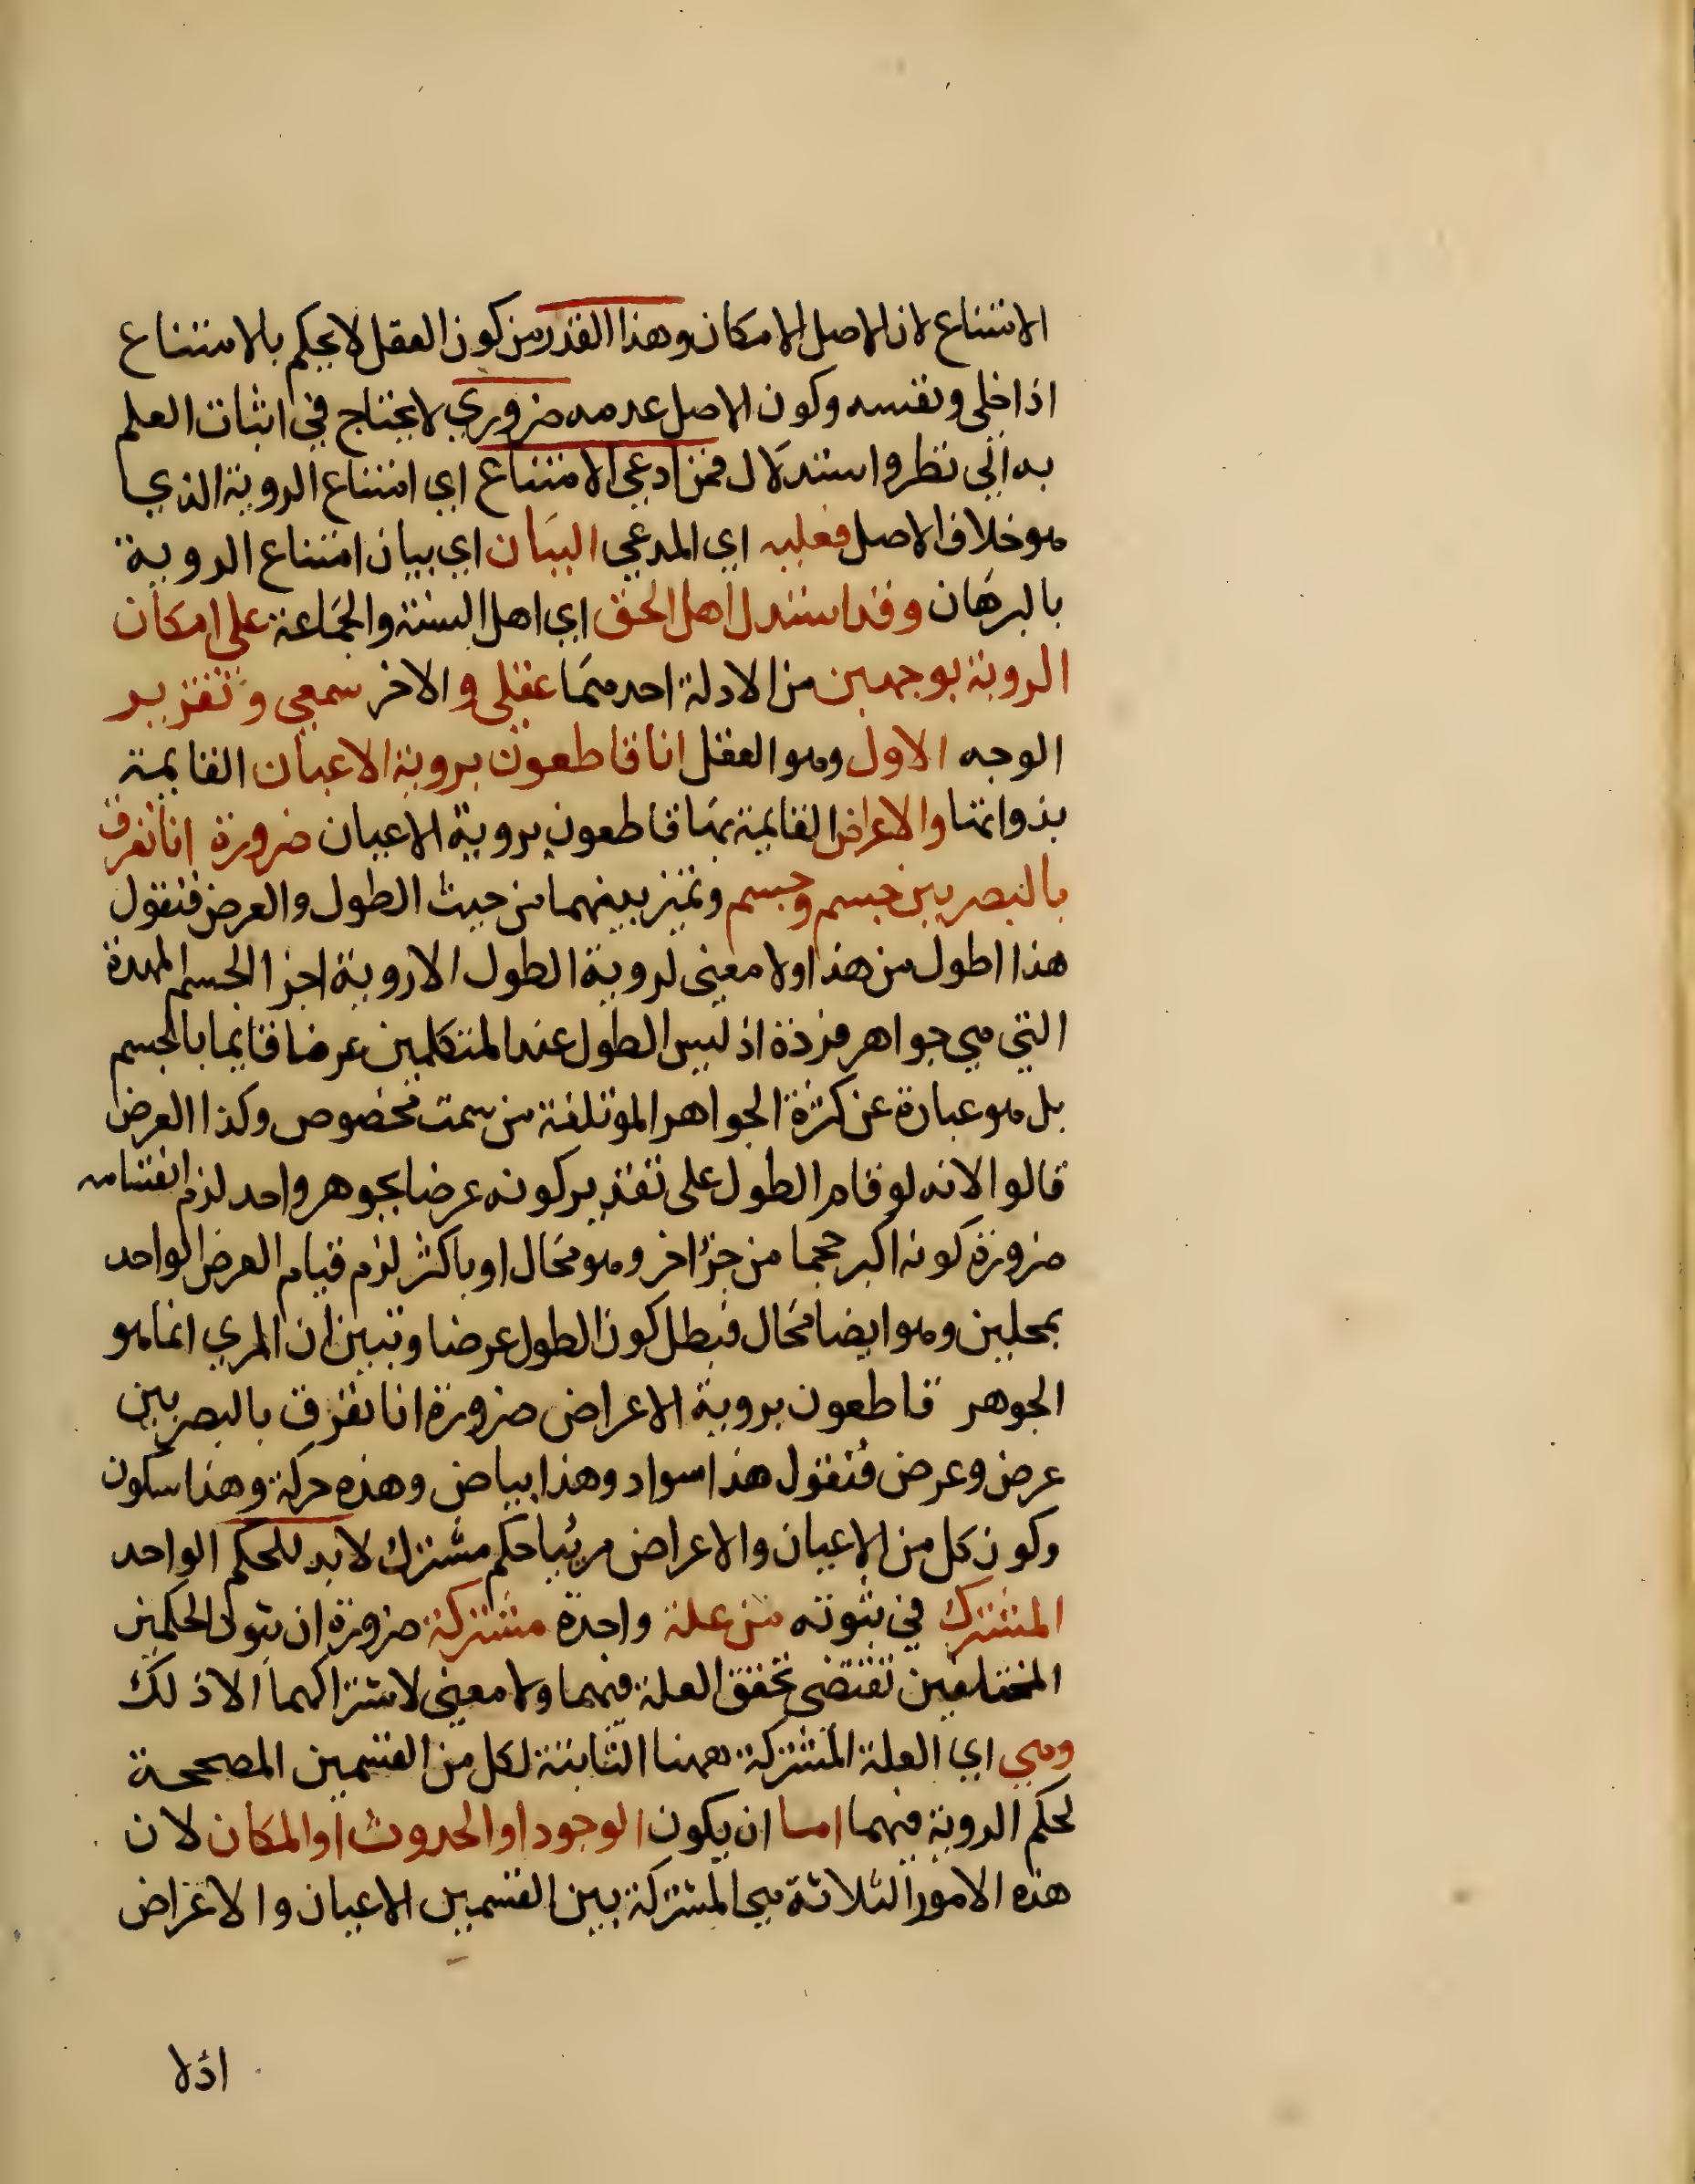 الامتناع لان الاصل الامكان وهذا القدر من كون العقل لا يحكم بالامتناع
اذا خلى ونفسه وكون الاصل عدمه ضروري لا يحتاج في اثبات العلم
به الى نظر واستدلال فمن ادعى الامتناع اي امتناع الروية الذي
هو خلاف الاصل فعليه اي المدعي البيان اي بيان امتناع الروية
بالبرهان وقد استدل اهل الحق اي اهل السنة والجماعة على امكان
الروية بوجهين من الادلة احدهما عقلي والاخر سمعي وتقرير
الوجه الاول وهو العقل انا قاطعون بروية الاعيان القايمة
بذواتها والاعراض القايمة بها قاطعون بروية الاعيان ضرورة انا نفرق
بالبصر بين جسم وجسم ونميز بينهما من حيث الطول والعرض فنقول
هذا اطول من هذا ولا معنى لروية الطول الا روية اجزا الجسم الممتدة
التي هي جواهر فردة اذ ليس الطول عند المتكلمين عرضا قايما بالجسم
بل هو عبارة عن كثرة الجواهر الموتلفة من سمت مخصوص وكذا العرض
قالوا لانه لو قام الطول على تقدير كونه عرضا بجوهر واحد لزم انقسامه
ضرورة كونه اكبر حجما من جزء اخر وهو محال او باكثر لزم قيام العرض الواحد
بمحلين وهو ايضا محال فبطل كون الطول عرضا وتبين ان المري انما هو
الجوهر قاطعون بروية الاعراض ضرورة انا نفرق بالبصر بين
عرض وعرض فنقول هذا سواد وهذا بياض وهذه حركة وهذا سكون
وكون كل من الاعيان والاعراض مرئيا حكم مشترك لا بد للحكم الواحد
المشترك في ثبوته من علة واحدة مشتركة ضرورة ان ثبوت الحكمين
المختلفين تقتضي تحقق العلة فيهما ولا معنى لاشتراكهما الا ذلك
وهي اي العلة المشتركة ههنا الثابتة لكل من القسمين المصححة
لحكم الروية فيهما اما ان يكون الوجود او الحدوث او المكان لان
هذه الامور الثلاثة هي المشتركة بين القسمين الاعيان والاعراض
اذ لا